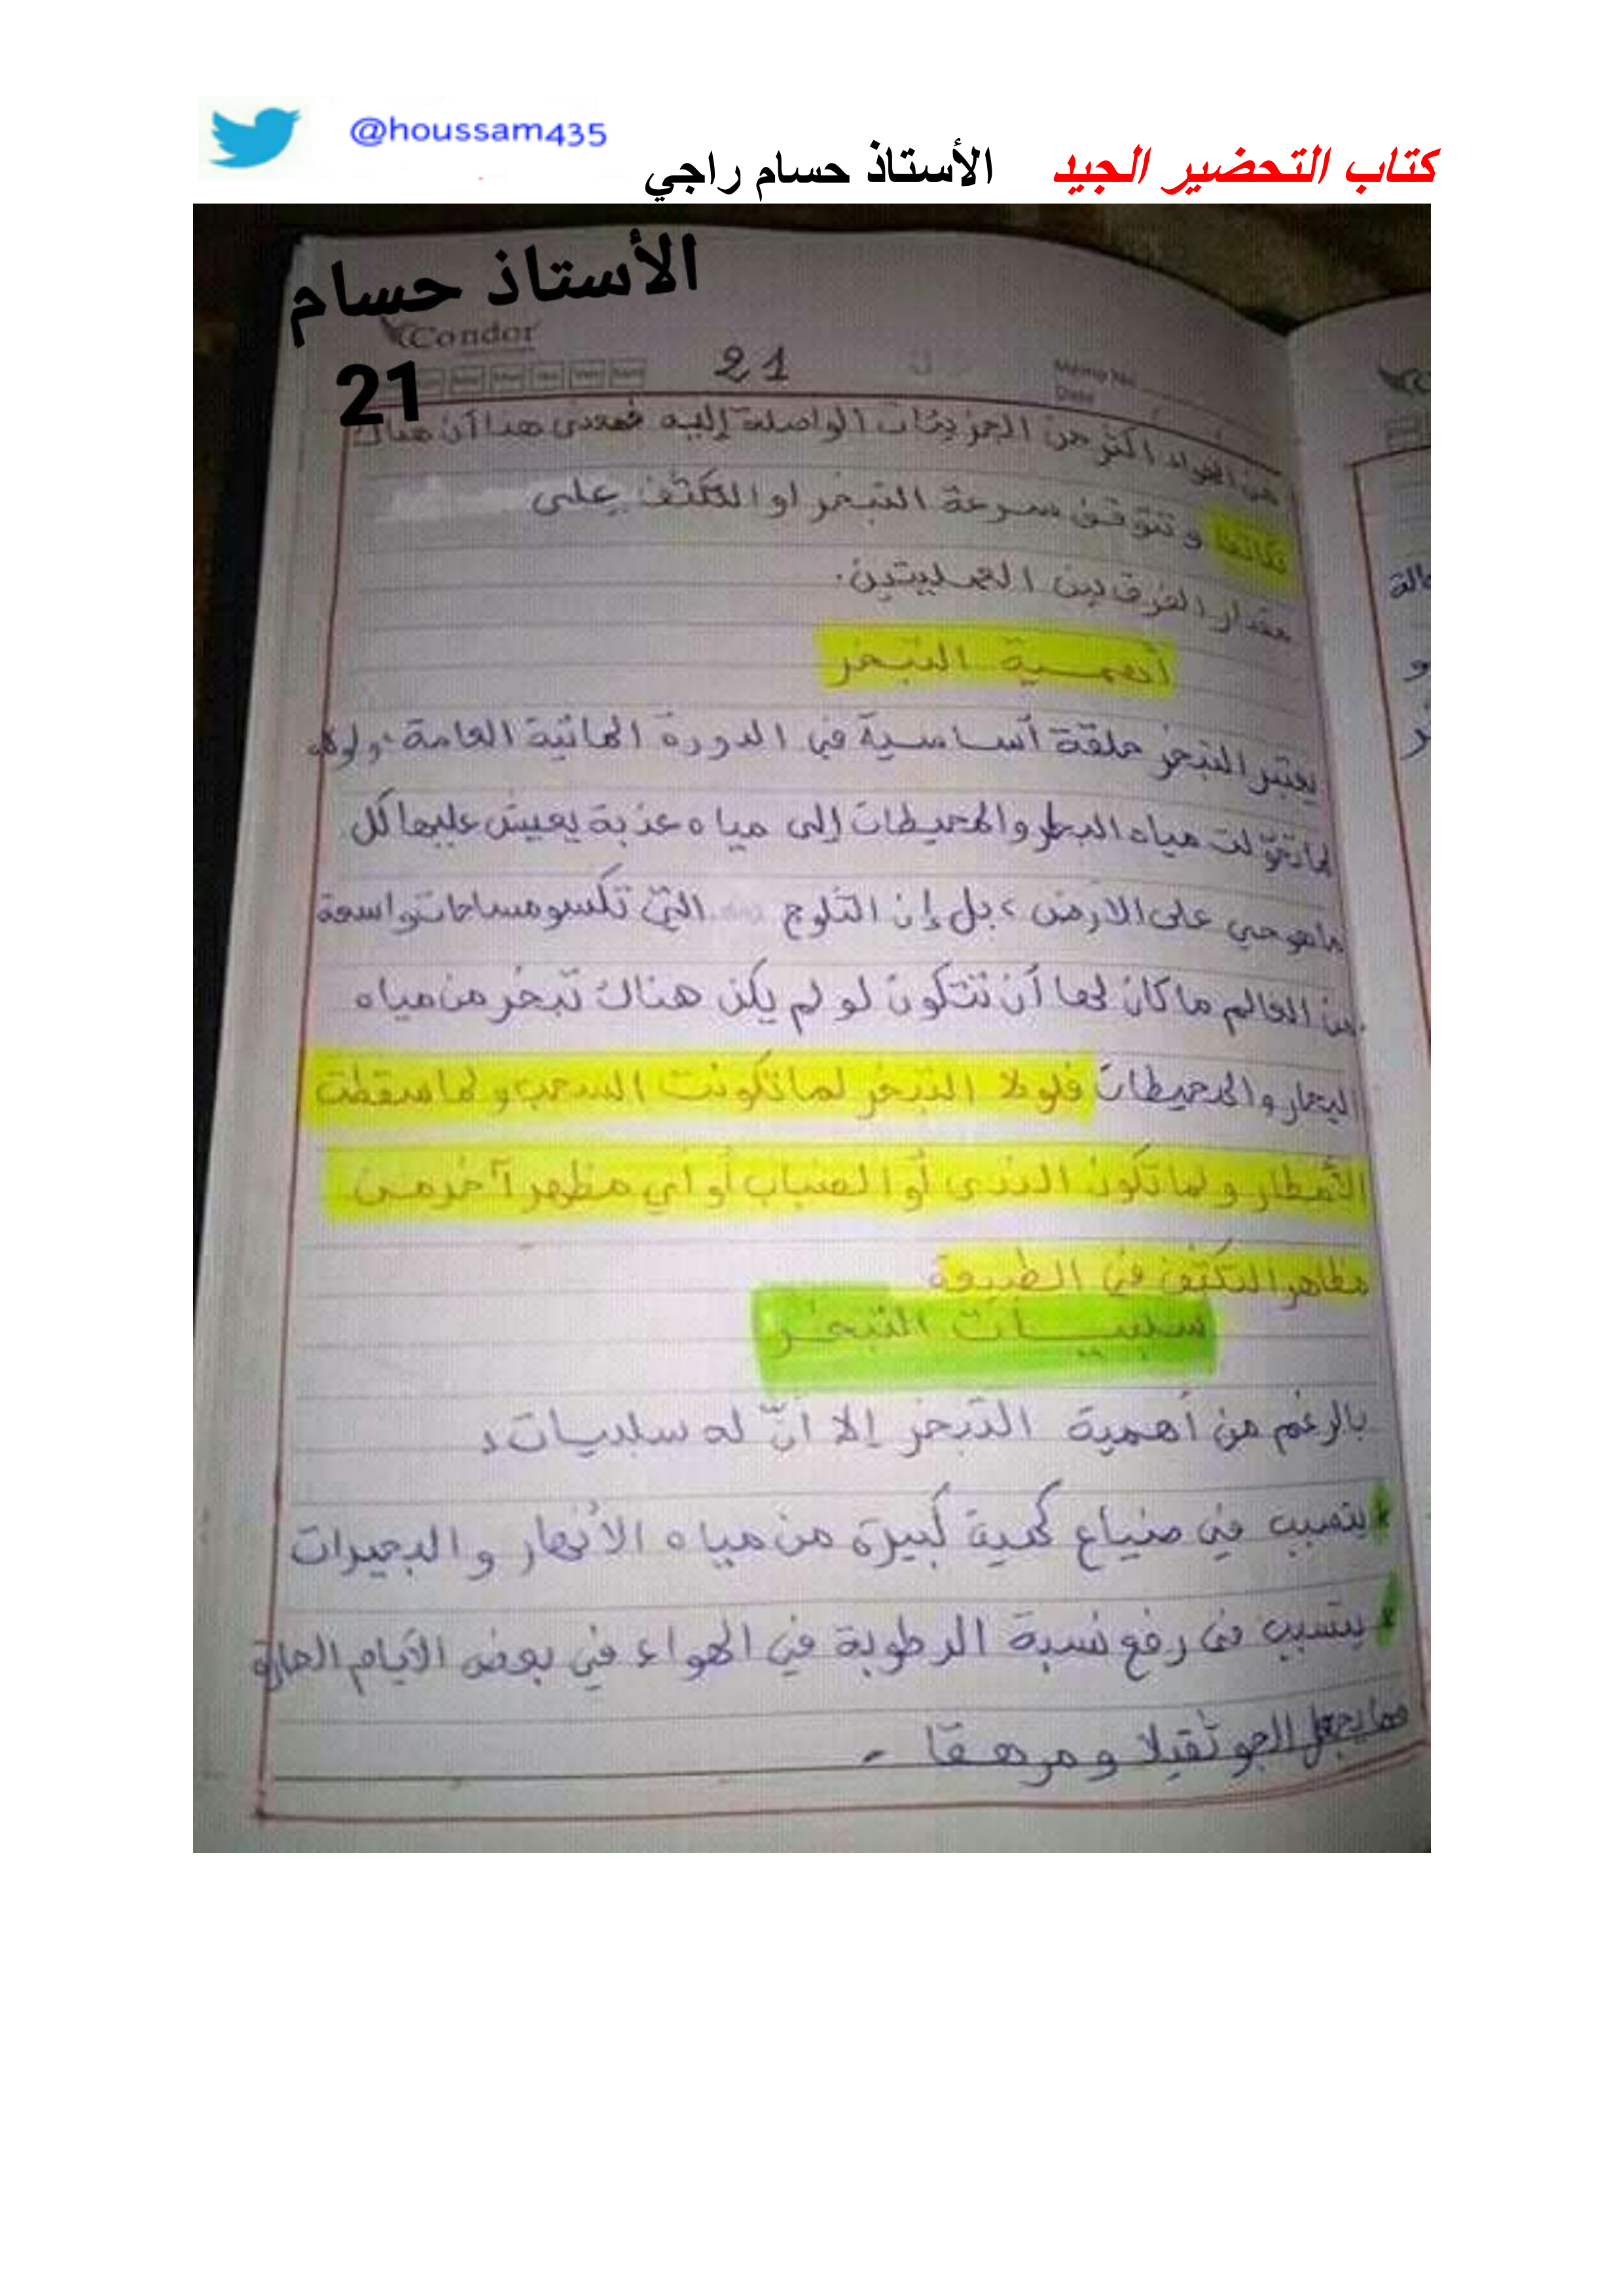 @houssam435
كتاب التحضير الجيد الأستاذ حسام راجي
الأستاذ حسام
Condor
21
21
Memo No
Date
من الهواء أكثر من الجزيئات الواصلة إليه فمعنى هذا أن هناك
تكاثفا وتتوقف سرعة التبخر او التكثف على
مقدار الفرق بين العمليتين.
أهمية التبخر
يعتبر التبخر حلقة أساسية في الدورة المائية العامة، ولولاه
لما تحولت مياه البحار والمحيطات إلى مياه عذبة يعيش عليها كل
ماهو حي على الأرض، بل إن الثلوج التي تكسو مساحات واسعة
من العالم ما كان لها أن تتكون لو لم يكن هناك تبخر من مياه
البحار والمحيطات فلولا التبخر لما تكونت السحب ولما سقطت
الأمطار ولما تكون الندى أو الضباب أو أي مظهر آخر من
مظاهر التكثف في الطبيعة
سلبيات التبخر
بالرغم من أهمية التبخر إلا أنّ له سلبيات:
* يتسبب في ضياع كمية كبيرة من مياه الأنهار والبحيرات
* يتسبب في رفع نسبة الرطوبة في الهواء في بعض الأيام الحارة
مما يجعل الجو ثقيلا ومرهقا.